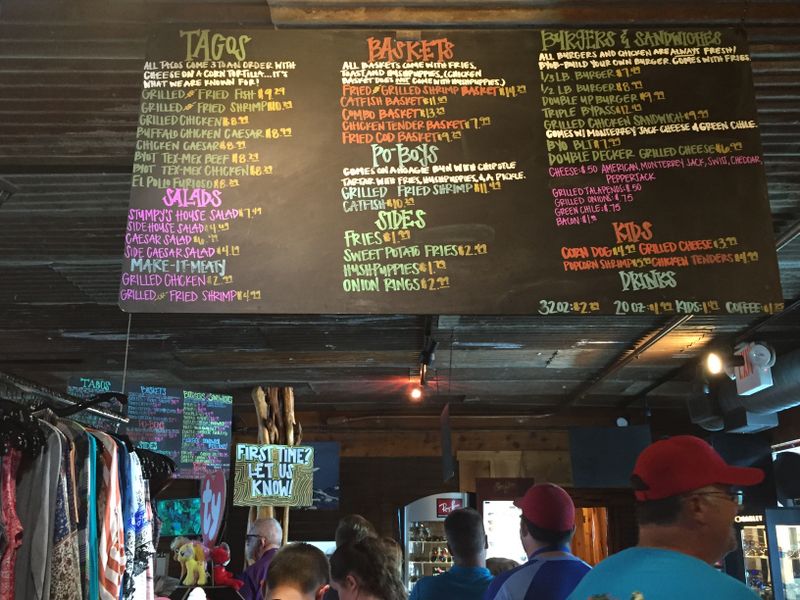 TACOS
ALL TACOS COME 3 TO AN ORDER WITH
CHEESE ON A CORN TORTILLA... IT'S
WHAT WE ARE KNOWN FOR!
GRILLED OR FRIED FISH $9.29
GRILLED OR FRIED SHRIMP $10.29
GRILLED CHICKEN $8.99
BUFFALO CHICKEN CAESAR $8.99
CHICKEN CAESAR $8.99
BYOT TEX-MEX BEEF $8.99
BYOT TEX-MEX CHICKEN $8.99
EL POLLO FURIOSO $8.99
SALADS
STUMPY'S HOUSE SALAD $7.49
SIDE HOUSE SALAD $4.99
CAESAR SALAD
SIDE CAESAR SALAD $4.19
MAKE-IT-MEATY
GRILLED CHICKEN $2.99
GRILLED OR FRIED SHRIMP $4.99
BASKETS
ALL BASKETS COME WITH FRIES,
TOAST, AND HUSHPUPPIES, (CHICKEN
BASKET DOES NOT COME WITH HUSHPUPPIES.)
FRIED OR GRILLED SHRIMP BASKET $14.29
CATFISH BASKET $11.99
COMBO BASKET $13.99
CHICKEN TENDER BASKET $7.99
FRIED COD BASKET $9.29
PO-BOYS
COMES ON A HOAGIE BUN WITH CHIPOTLE
TARTAR WITH FRIES, HUSHPUPPIES, & A PICKLE.
GRILLED FRIED SHRIMP $11.99
CATFISH $10.99
SIDES
FRIES $1.99
SWEET POTATO FRIES $2.99
HUSHPUPPIES $1.79
ONION RINGS $2.99
BURGERS & SANDWICHES
ALL BURGERS AND CHICKEN ARE ALWAYS FRESH!
BYO-BUILD YOUR OWN BURGER. COMES WITH FRIES.
1/3 LB. BURGER $7.99
1/2 LB BURGER $8.99
DOUBLE UP BURGER $9.99
TRIPLE BYPASS $12.99
GRILLED CHICKEN SANDWICH $9.99
COMES W/ MONTEREY JACK CHEESE & GREEN CHILE.
BYO BLT $7.99
DOUBLE DECKER GRILLED CHEESE $6.99
CHEESE: $.50 AMERICAN, MONTERREY JACK, SWISS, CHEDDAR,
PEPPERJACK
GRILLED JALAPENOS: $.50
GRILLED ONIONS: $.75
GREEN CHILE: $.75
BACON: $1.29
KIDS
CORN DOG $4.99 GRILLED CHEESE $3.99
POPCORN SHRIMP $5.99 CHICKEN TENDERS $4.99
DRINKS
32OZ: $2.29 20OZ: $1.99 KIDS: $1.49 COFFEE: $1.99
TACOS
BASKETS
BURGERS & SANDWICHES
PO-BOYS
SIDES
FIRST TIME?
LET US
KNOW!
ty
Ray-Ban
OAKLEY